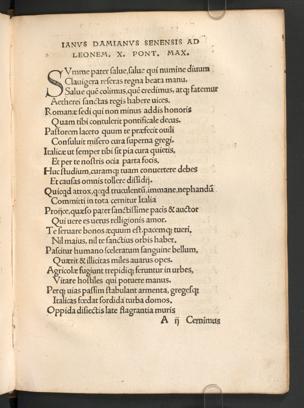 IANVS DAMIANVS SENENSIS AD
LEONEM. X. PONT. MAX.
SVmme pater salue, salue qui numine diuum
Clauigera reseras regna beata manu.
Salue quē colimus, quē credimus, atq; fatemur
Aetherei sanctas regis habere uices.
Romanæ sedi qui non minus addis honoris
Quam tibi contulerit pontificale decus.
Pastorem lacero quum te præfecit ouili
Consuluit misero cura superna gregi.
Italicæ ut semper tibi sit pia cura quietis,
Et per te nostris ocia parta focis,
Huc studium, curamq; tuam conuertere debes
Et causas omnis tollere dissidij.
Quicqd atrox, qcqd truculentū, immane, nephandū
Committi in tota cernitur Italia
Projice, quæso pater sanctissime pacis & auctor
Qui uere es uerus relligionis amor.
Te seruare bonos æquum est pacemq; tueri,
Nil maius, nil te sanctius orbis habet.
Pascitur humano sceleratum sanguine bellum,
Quærit & illicitas miles auarus opes.
Agricolæ fugiunt trepidiq; feruntur in urbes,
Vitare hostiles qui potuere manus.
Perq; uias passim stabulant armenta, gregesq;
Italicas fœdat sordida turba domos,
Oppida disiectis late flagrantia muris
A ij Cernimus